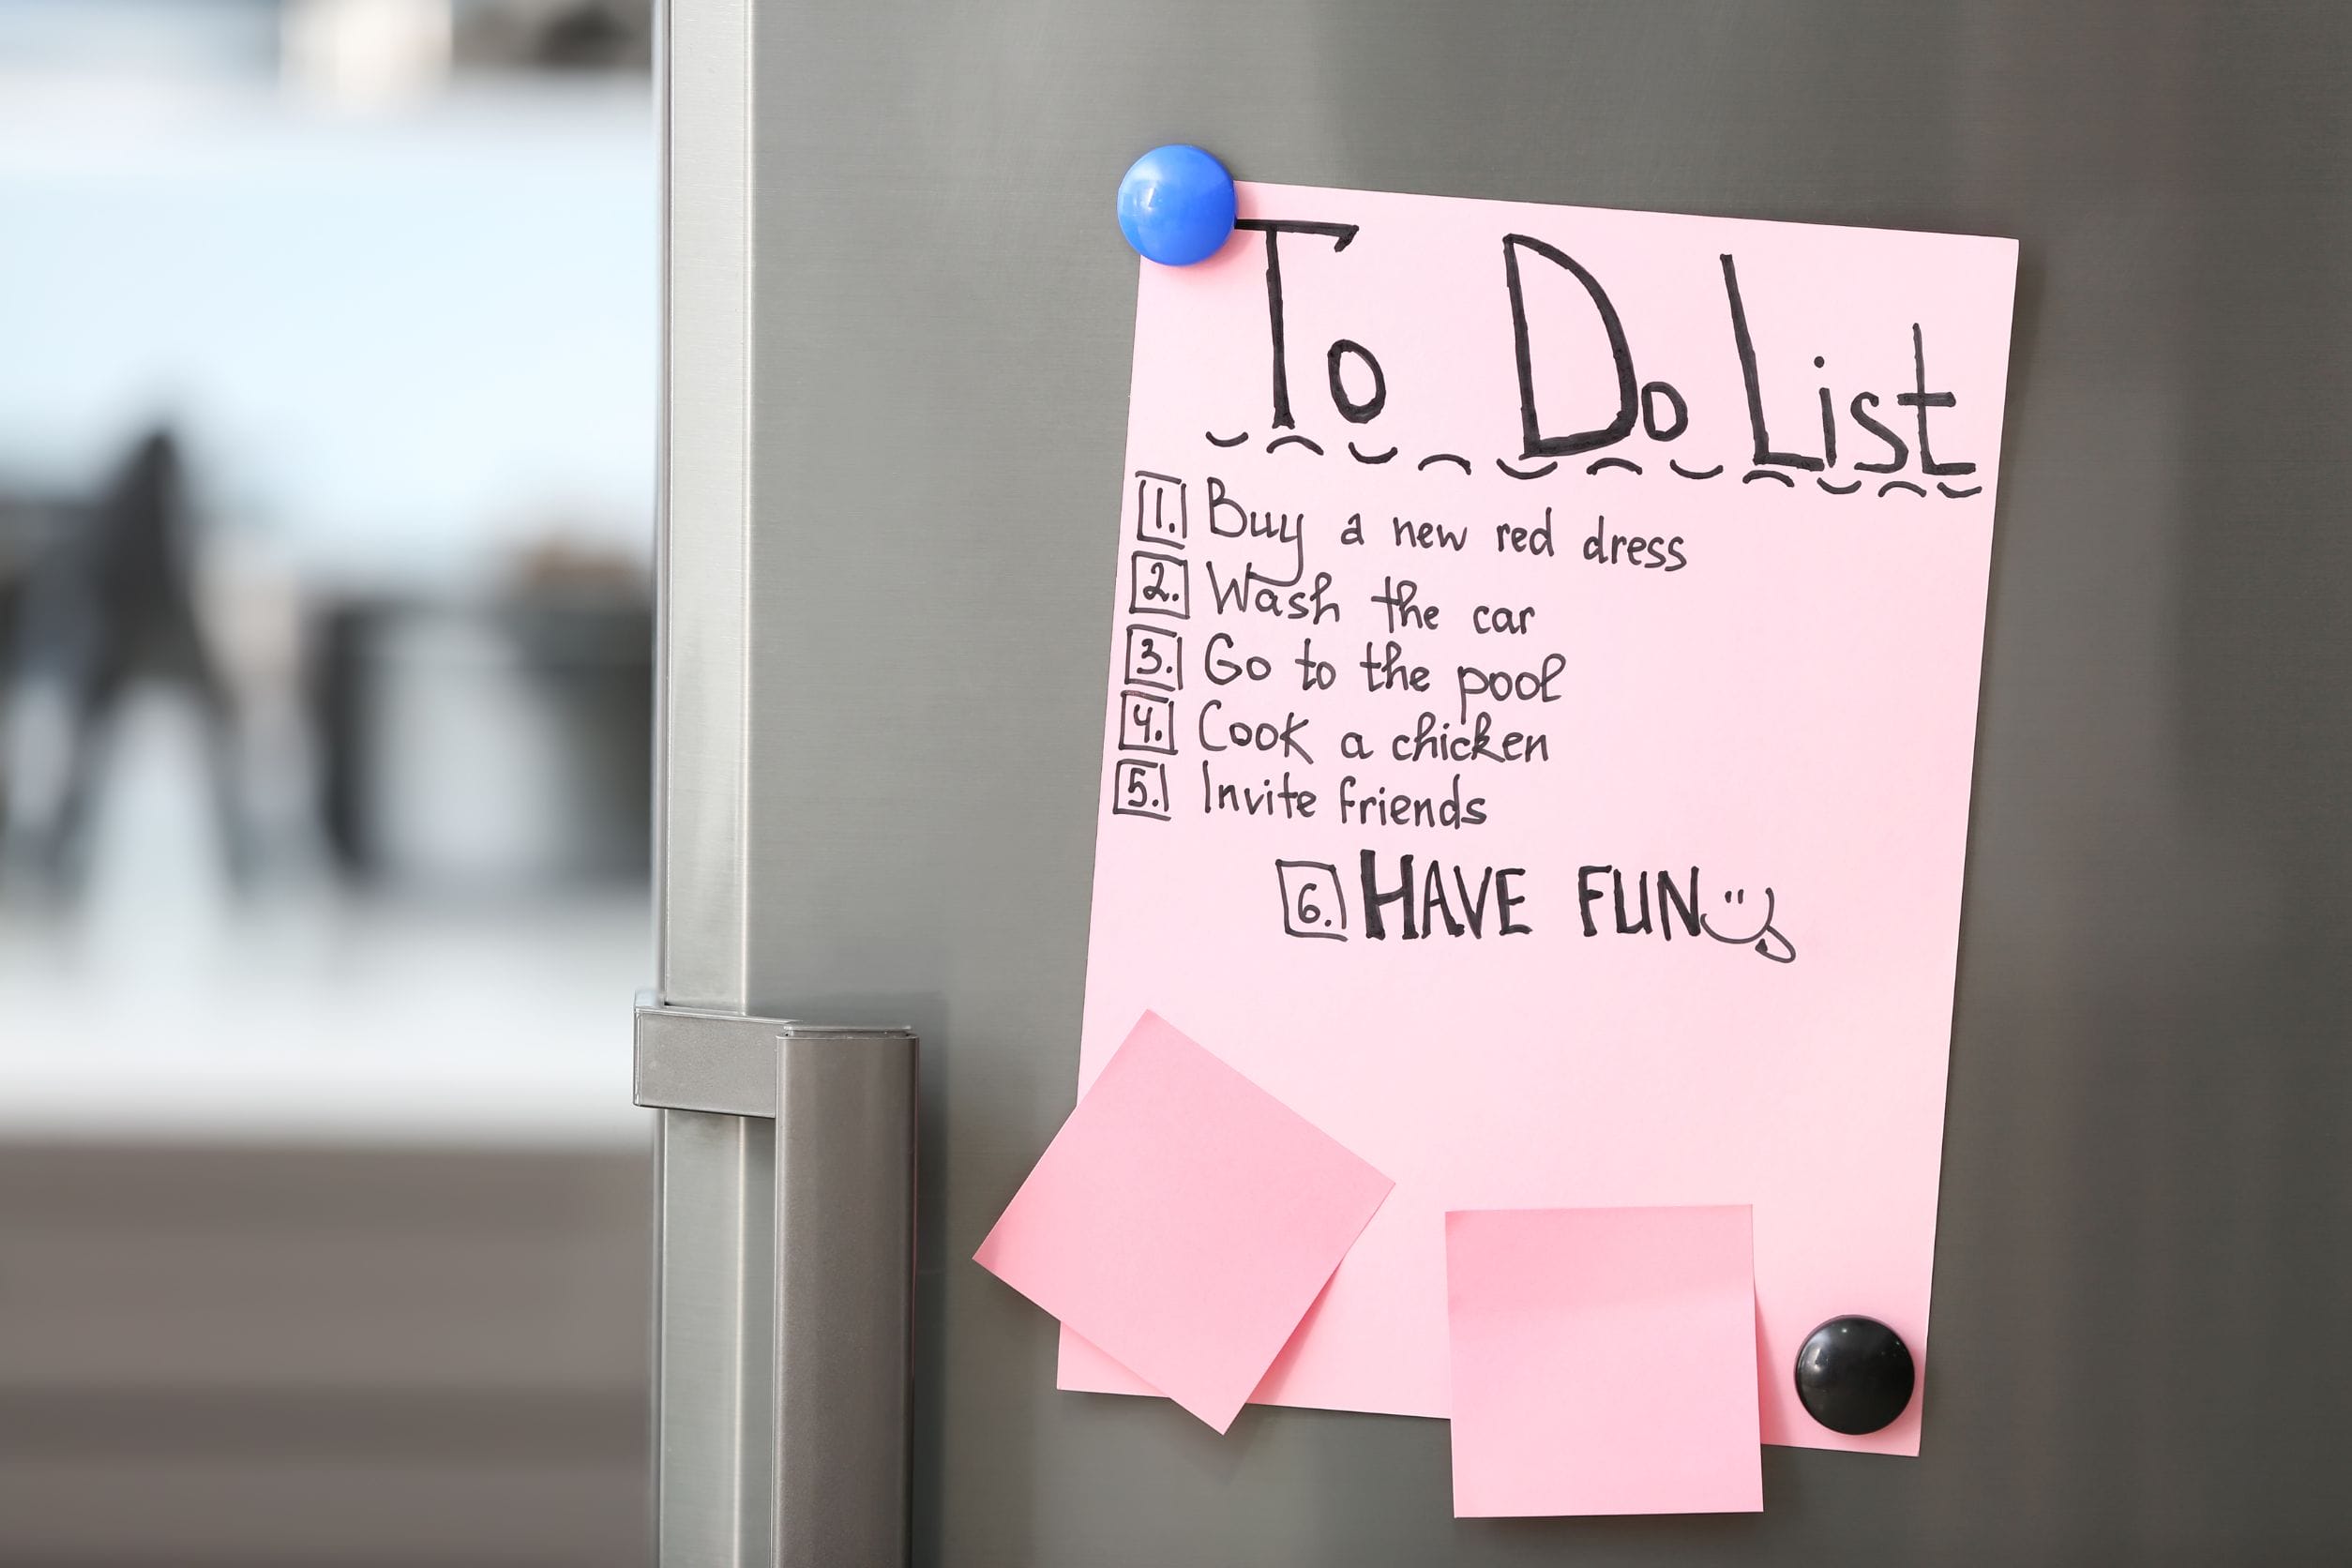 To Do List
1. Buy a new red dress
2. Wash the car
3. Go to the pool
4. Cook a chicken
5. Invite friends
6. HAVE FUN